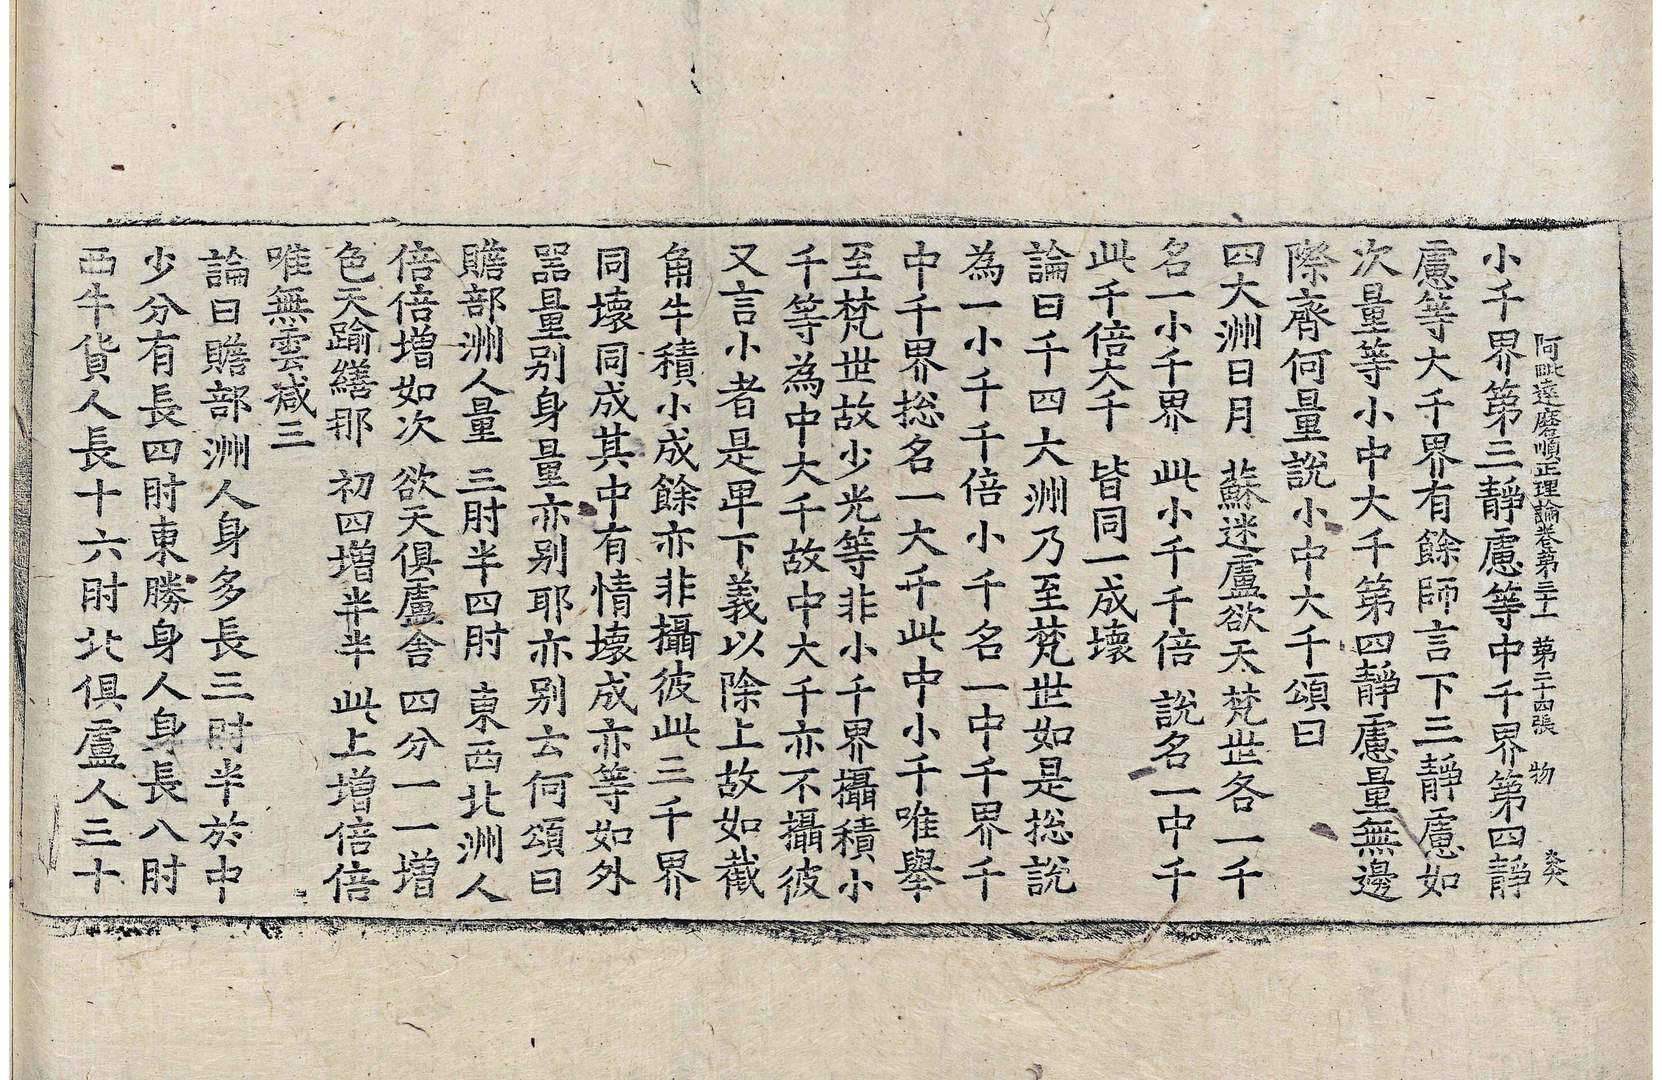 阿毗達磨順正理論卷第三十一 第二十四張 物
小千界第三靜慮等中千界第四靜
慮等大千界有餘師言下三靜慮如
次量等小中大千第四靜慮量無邊
際齊何量說小中大千頌曰
四大洲日月 蘇迷盧欲天梵世各一千
名一小千界 此小千千倍 說名一中千
此千倍大千 皆同一成壞
論曰千四大洲乃至梵世如是捴說
為一小千千倍小千名一中千界千
中千界捴名一大千此中小千唯舉
至梵世故少光等非小千界攝積小
千等為中大千故中大千亦不攝彼
又言小者是卑下義以除上故如截
角牛積小成餘亦非攝彼此三千界
同壞同成其中有情壞成亦等如外
器量别身量亦别耶亦别云何頌曰
贍部洲人量 三肘半四肘 東西北洲人
倍倍增如次 欲天俱盧舍 四分一一增
色天踰繕那 初四增半半 此上增倍倍
唯無雲減三
論曰贍部洲人身多長三肘半於中
少分有長四肘東勝身人身長八肘
西牛貨人長十六肘北俱盧人三十